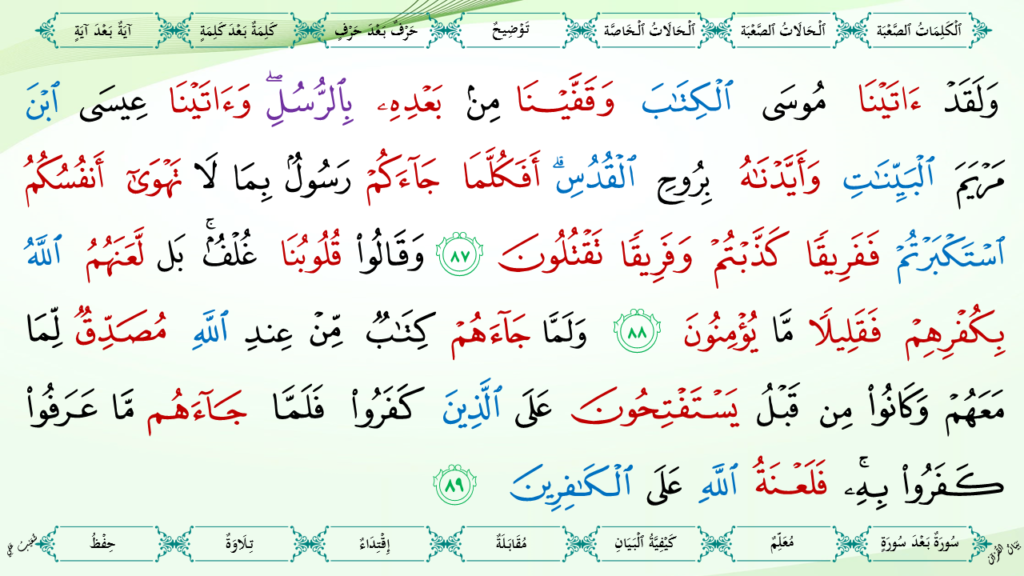 اَلْكَلِمَاتُ الصَّعْبَة اَلْحَالَاتُ الصَّعْبَة اَلْحَالَاتُ الْخَاصَّة تَوْضِيحٌ حَرْفٌ بَعْدَ حَرْفٍ كَلِمَةٌ بَعْدَ كَلِمَةٍ آيَةٌ بَعْدَ آيَةٍ
وَلَقَدْ ءَاتَيْنَا مُوسَى ٱلْكِتَٰبَ وَقَفَّيْنَا مِنۢ بَعْدِهِۦ بِٱلرُّسُلِۖ وَءَاتَيْنَا عِيسَى ٱبْنَ
مَرْيَمَ ٱلْبَيِّنَٰتِ وَأَيَّدْنَٰهُ بِرُوحِ ٱلْقُدُسِۗ أَفَكُلَّمَا جَآءَكُمْ رَسُولٌۢ بِمَا لَا تَهْوَىٰٓ أَنفُسُكُمُ
ٱسْتَكْبَرْتُمْ فَفَرِيقًا كَذَّبْتُمْ وَفَرِيقًا تَقْتُلُونَ ٨٧ وَقَالُوا۟ قُلُوبُنَا غُلْفٌۢۚ بَل لَّعَنَهُمُ ٱللَّهُ
بِكُفْرِهِمْ فَقَلِيلًا مَّا يُؤْمِنُونَ ٨٨ وَلَمَّا جَآءَهُمْ كِتَٰبٌ مِّنْ عِندِ ٱللَّهِ مُصَدِّقٌ لِّمَا
مَعَهُمْ وَكَانُوا۟ مِن قَبْلُ يَسْتَفْتِحُونَ عَلَى ٱلَّذِينَ كَفَرُوا۟ فَلَمَّا جَآءَهُم مَّا عَرَفُوا۟
كَفَرُوا۟ بِهِۦۚ فَلَعْنَةُ ٱللَّهِ عَلَى ٱلْكَٰفِرِينَ ٨٩
سُورَةٌ بَعْدَ سُورَةٍ مُعَلِّمٌ كَيْفِيَّةُ الْبَيَانِ مُقَابَلَةٌ إِقْتِدَاءٌ تِلَاوَةٌ حِفْظٌ
بَيَانُ الْقُرْآنِ